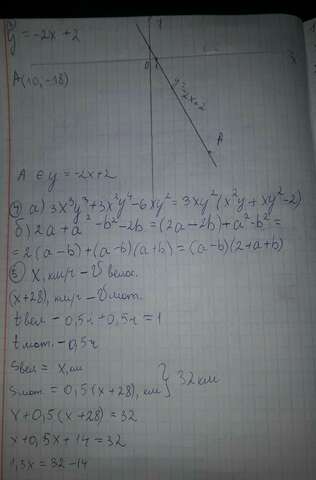 y = -2x + 2
y
0 1
x
A(10, -18)
y = -2x+2
A
A ∈ y = -2x+2
④ а) 3x³y³+3x²y⁴-6xy² = 3xy²(x²y+xy²-2)
б) 2a + a² - b² - 2b = (2a - 2b) + a² - b² =
= 2(a-b) + (a-b)(a+b) = (a-b)(2+a+b)
⑤ x, км/ч - V велос.
(x+28), км/ч - V мот.
t вел - 0,5ч + 0,5ч = 1
t мот. - 0,5ч
S вел = x, км
S мот. = 0,5(x+28), км } 32 км
x + 0,5(x+28) = 32
x + 0,5x + 14 = 32
1,3x = 32-14